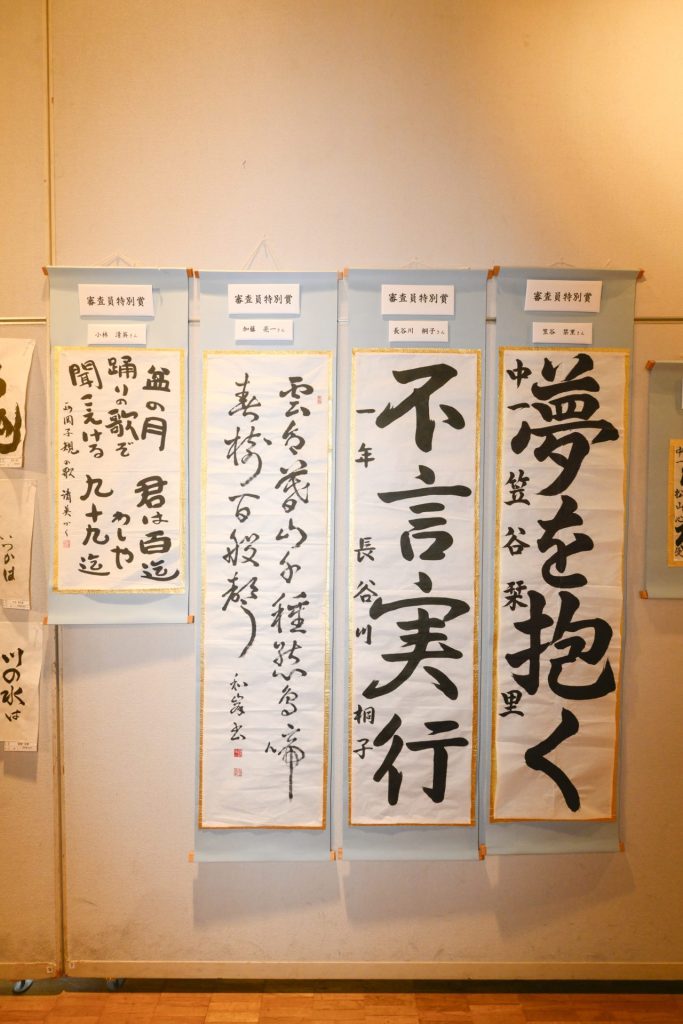 審査員特別賞
笠谷 栞里さん
夢を抱く
中一 笠谷栞里
審査員特別賞
長谷川 桐子さん
不言実行
一年 長谷川桐子
審査員特別賞
加藤 亮一さん
山千種態鳥啼
春樹百般聲
審査員特別賞
小林 清英さん
盆の月 君は百迄
踊りの歌ぞ わしや
聞こえける 九十九迄
子規の歌
いつかは
川の水は
中一 松山